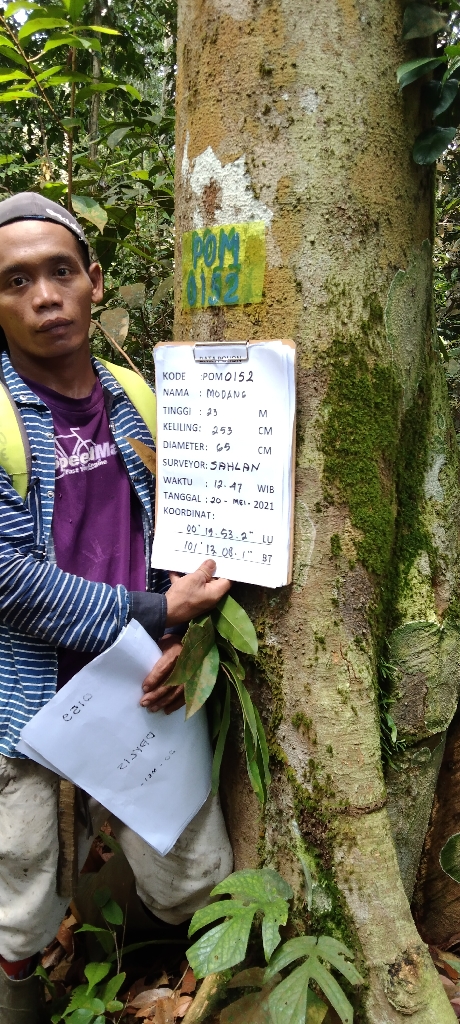 POM
0152
DATA POHON
KODE :POM0152
NAMA : MODANG
TINGGI : 23 M
KELILING: 253 CM
DIAMETER: 65 CM
SURVEYOR: SAHLAN
WAKTU : 12.47 WIB
TANGGAL : 20 - MEI - 2021
KOORDINAT:
00° 19. 53. 2" LU
101° 13 08. 1" BT
speedMa
0153